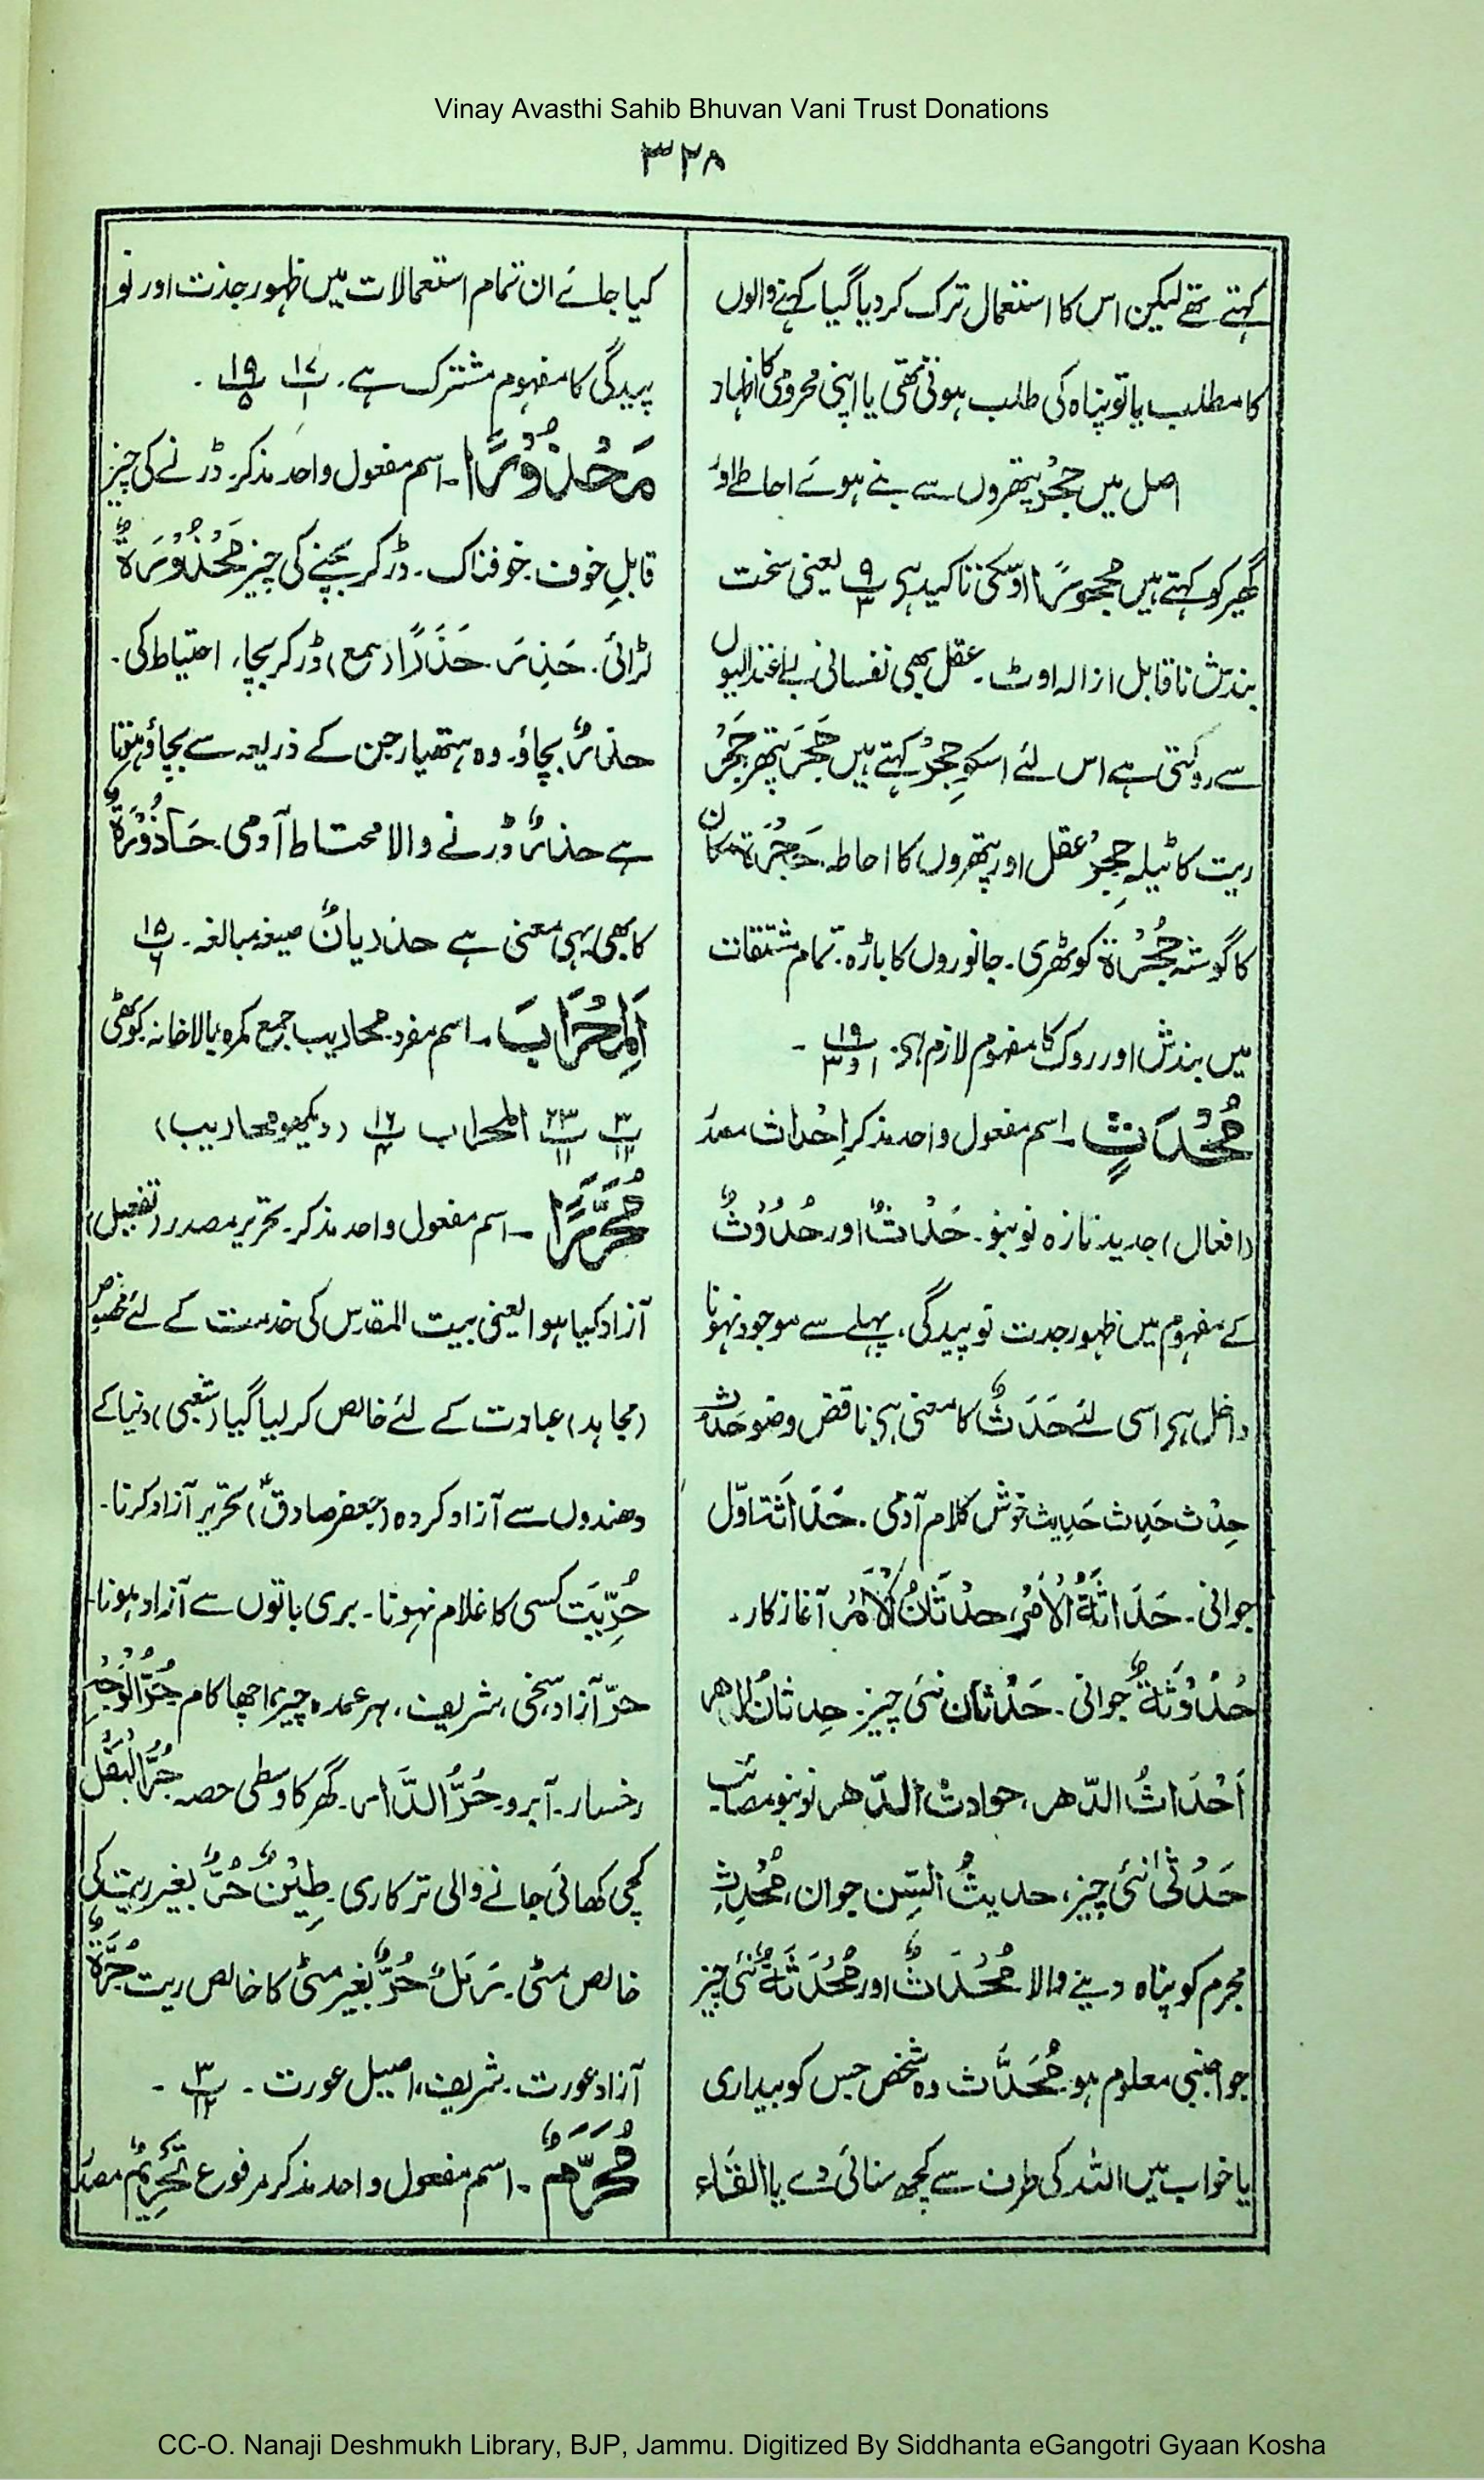 Vinay Avasthi Sahib Bhuvan Vani Trust Donations
۳۲۸
کہتے تھے لیکن اس کا استعمال ترک کردیا گیا کہنے والوں
کا مطلب یا تو پناہ کی طلب ہوتی تھی یا اپنی محرومی کا اظہار
اصل میں حِجْرٌ پتھروں سے بنے ہوئے احاطے اور
گھیر کو کہتے ہیں محجورًا اسی کی تاکید ہے ۱۹/۳ یعنی سخت
بندش ناقابل ازالہ اوٹ۔ عقل بھی نفسانی بے اعتدالیوں
سے روکتی ہے اس لئے اسکو حِجْرٌ کہتے ہیں حَجَر پتھر حَجْرٌ
ریت کا ٹیلہ حِجْرٌ عقل اور پتھروں کا احاطہ۔ حَجْرَۃ مکان
کا گوشہ حُجْرَۃ کوٹھری۔ جانوروں کا باڑہ۔ تمام مشتقات
میں بندش اور روک کا مفہوم لازم ہے۔ ۱۹/۱ و ۳ ۔
مُحْدَثٍ۔ اسم مفعول واحد مذکر اِحْداث مصدر
(افعال) جدید تازہ نو بنو۔ حَدَثٌ اور حُدُوْثٌ
کے مفہوم میں ظہور جدت نو پیدگی، پہلے سے موجود نہونا
داخل ہے اسی لئے حَدَثٌ کا معنی ہے ناقض وضو حَدُث
حِدْث حَدِث حَدِیث خوش کلام آدمی۔ حَدَاثَۃ اوّل
جوانی۔ حَدَاثَۃُ الْاَمْرِ، حِدْثَانُ الْاَمْرِ آغاز کار۔
حُدُوْثَۃٌ جوانی۔ حَدْثَان نئی چیز۔ حِدثانُ الدھر
اَحْدَاثُ الدّھر، حوادث الدّھر نو بنو مصائب
حَدُثٰی نئی چیز، حدیثُ السِّن جوان، مُحْدِث
مجرم کو پناہ دینے والا مُحْدَثٌ اور مُحْدَثَۃٌ نئی چیز
جو اجنبی معلوم ہو۔ مُحَدَّث وہ شخص جس کو بیداری
یا خواب میں اللہ کی طرف سے کچھ سنائی دے یا القاء
کیا جائے ان تمام استعمالات میں ظہور جدت اور نو
پیدگی کا مفہوم مشترک ہے۔ ۱۷/۱ ۱۹/۵ ۔
مَحْذُوْرًا۔ اسم مفعول واحد مذکر۔ ڈرنے کی چیز
قابلِ خوف۔ خوفناک۔ ڈر کر بچنے کی چیز مَحْذُوْرَۃٌ
لڑائی۔ حَذِرَ۔ حَذَرًا (سمع) ڈر کر بچا، احتیاط کی۔
حذرٌ بچاؤ۔ وہ ہتھیار جن کے ذریعہ سے بچاؤ ہوتا
ہے حذرٌ ڈرنے والا محتاط آدمی۔ حَاذُوْرَۃٌ
کا بھی یہی معنی ہے حذریانٌ صیغہ مبالغہ۔ ۱۵/۶
اَلْمِحْرَابَ۔ اسم مفرد۔ محاریب جمع کمرہ بالاخانہ کوٹھی
۳/۱۲ ۲۳/۱۱ المحراب ۱۶/۴ (دیکھو محاریب)
مُحَرَّرًا۔ اسم مفعول واحد مذکر۔ تحریر مصدر (تفعیل)
آزاد کیا ہوا یعنی بیت المقدس کی خدمت کے لئے مخصوص
(مجاہد) عبادت کے لئے خالص کر لیا گیا (شعبی) دنیا کے
دھندوں سے آزاد کردہ (جعفر صادقؒ) تحریر آزاد کرنا۔
حُرِّیَت کسی کا غلام نہونا۔ بری باتوں سے آزاد ہونا۔
حرّ آزاد، سخی، شریف، ہر عمدہ چیز، اچھا کام حُرُّ الْوَجْہِ
رخسار۔ آبرو۔ حُرُّ الدَّار۔ گھر کا وسطی حصہ حُرُّ الْبَقْل
کچی کھائی جانے والی ترکاری۔ طِیْنٌ حُرٌّ بغیر ریت کی
خالص مٹی۔ رَمْلٌ حُرٌّ بغیر مٹی کا خالص ریت حُرَّۃٌ
آزاد عورت۔ شریف، اصیل عورت ۔ ۳/۱۲ ۔
مُحَرَّمٌ۔ اسم مفعول واحد مذکر مرفوع تَحْرِیْمٌ مصدر
CC-O. Nanaji Deshmukh Library, BJP, Jammu. Digitized By Siddhanta eGangotri Gyaan Kosha